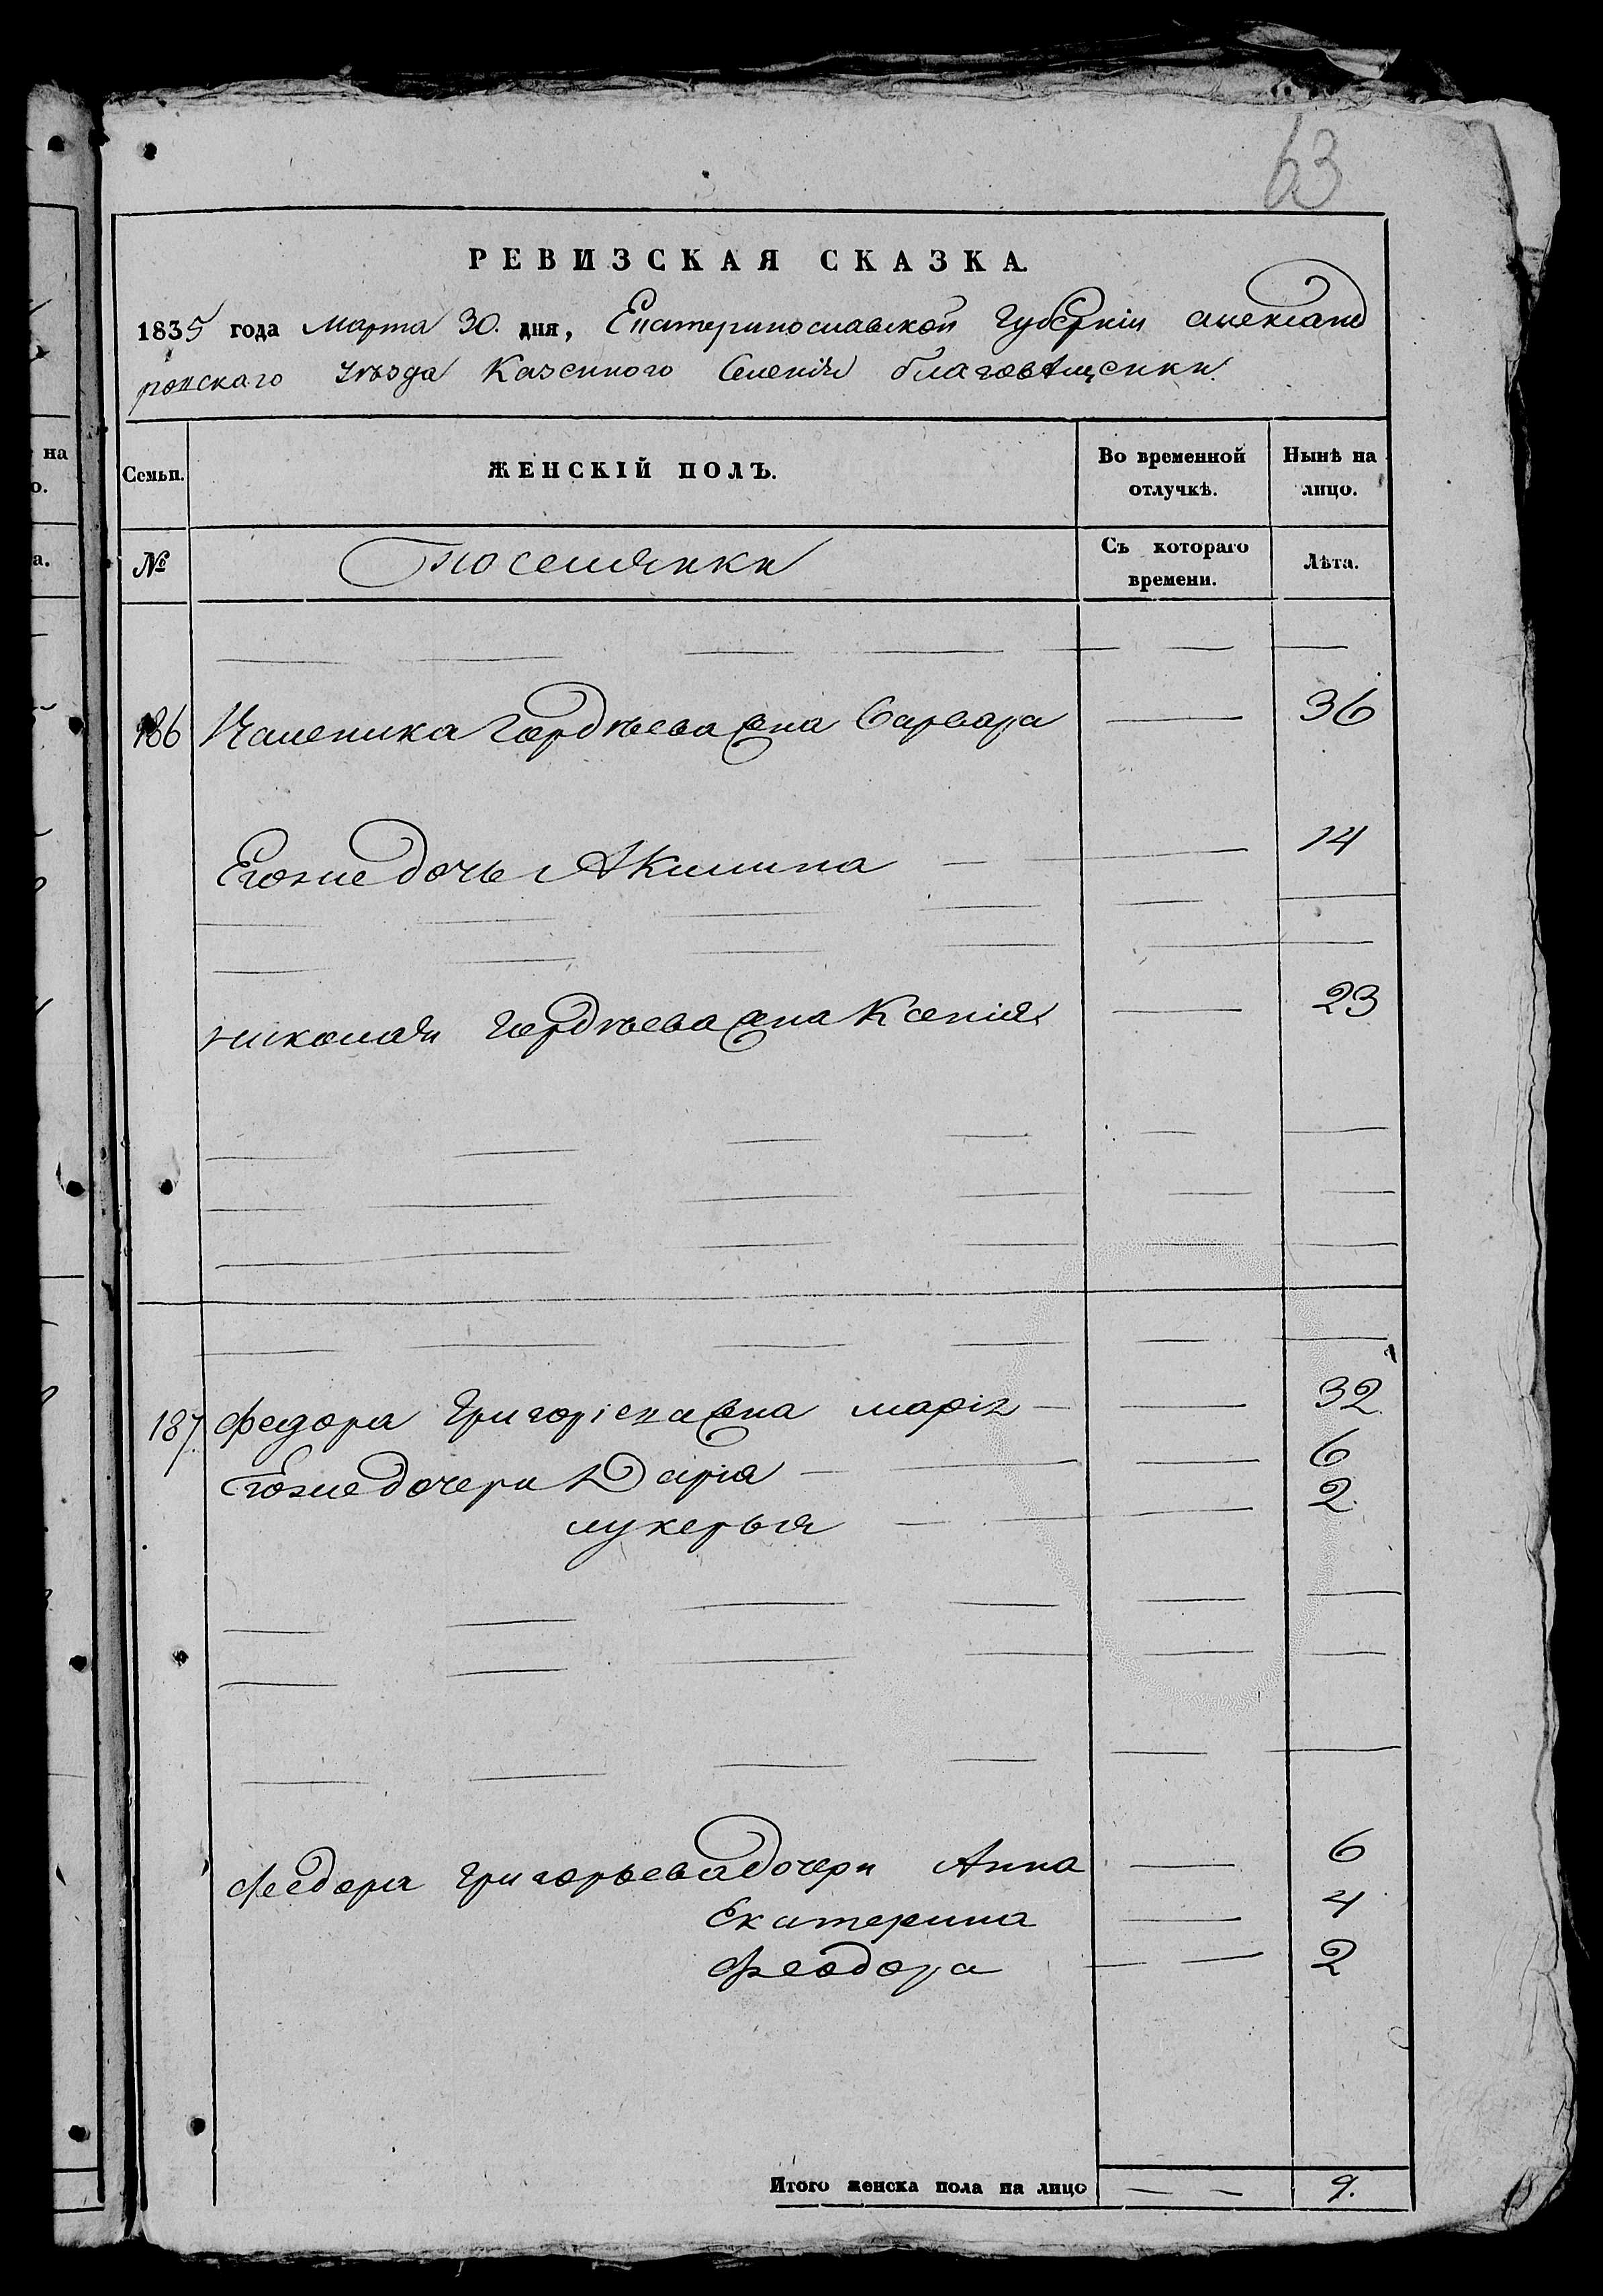 63
РЕВИЗСКАЯ СКАЗКА.
1835 года Марта 30. дня, Екатеринославской Губерніи Александ
ровскаго Уѣзда Казенного Селенія благовѣщенки.
Семьи.
ЖЕНСКІЙ ПОЛЪ.
Во временной отлучкѣ.
Нынѣ на лицо.
№
Поселянки
Съ котораго времени.
Лѣта.
186 Гордѣева жена Варвара 36
Егоже дочь Акилина 14
Николая Гордѣева жена Ксенія 23
187. Федора Григоріева жена Марія 32.
Егоже дочери Дарія 6
Лукерья 2.
Феодора Григорьева дочери Анна 6
Екатерина 4
Феодора 2
Итого женска пола на лицо 9.
на
о.
а.